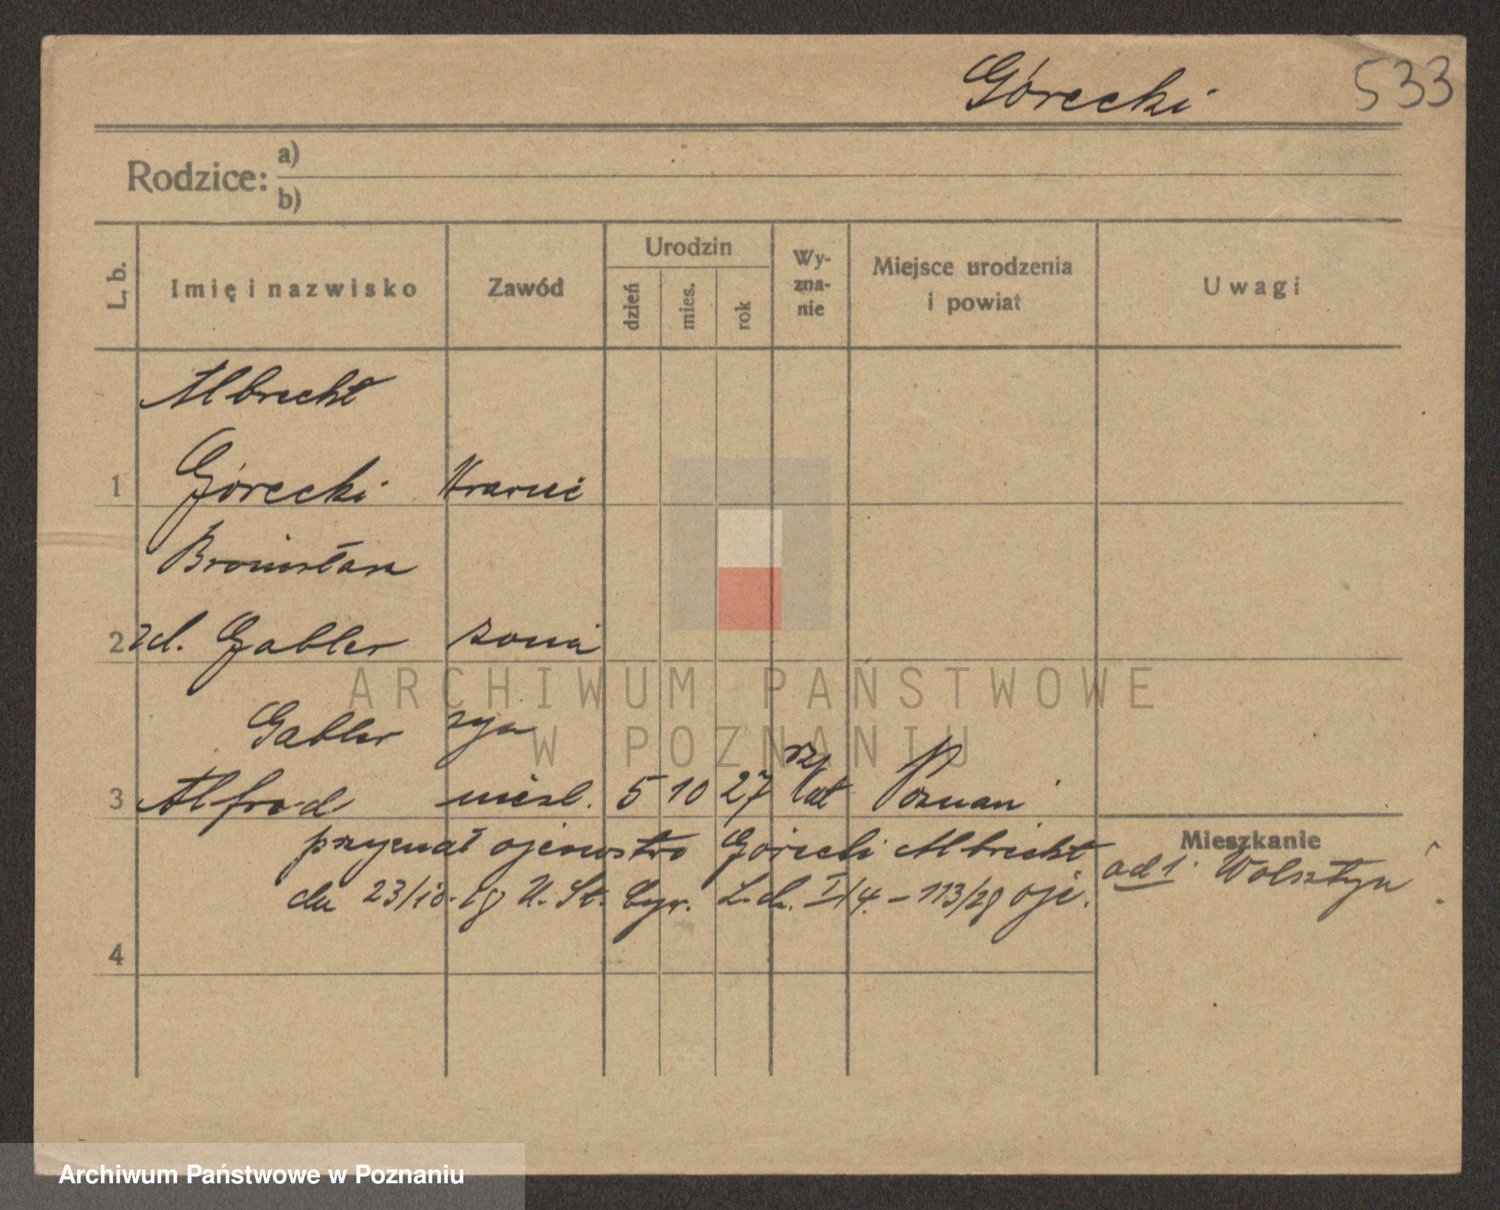 Górecki 533
Rodzice: a)
b)
L. b.
Imię i nazwisko
Zawód
Urodzin
dzień
mies.
rok
Wy-
zna-
nie
Miejsce urodzenia
i powiat
Uwagi
Albrecht
1 Górecki
Bronisława
2 zd. Gabler żona
Gabler syn
3 Alfred nieśl. 5 10 27 rz kat Poznań
przyznał ojcowstwo Górecki Albrecht
dn 23/10. 28 U. St. Cyw. L. dz. I/4. – 113/28
4
Mieszkanie
ad 1. Wolsztyn
ARCHIWUM PAŃSTWOWE
W POZNANIU
Archiwum Państwowe w Poznaniu